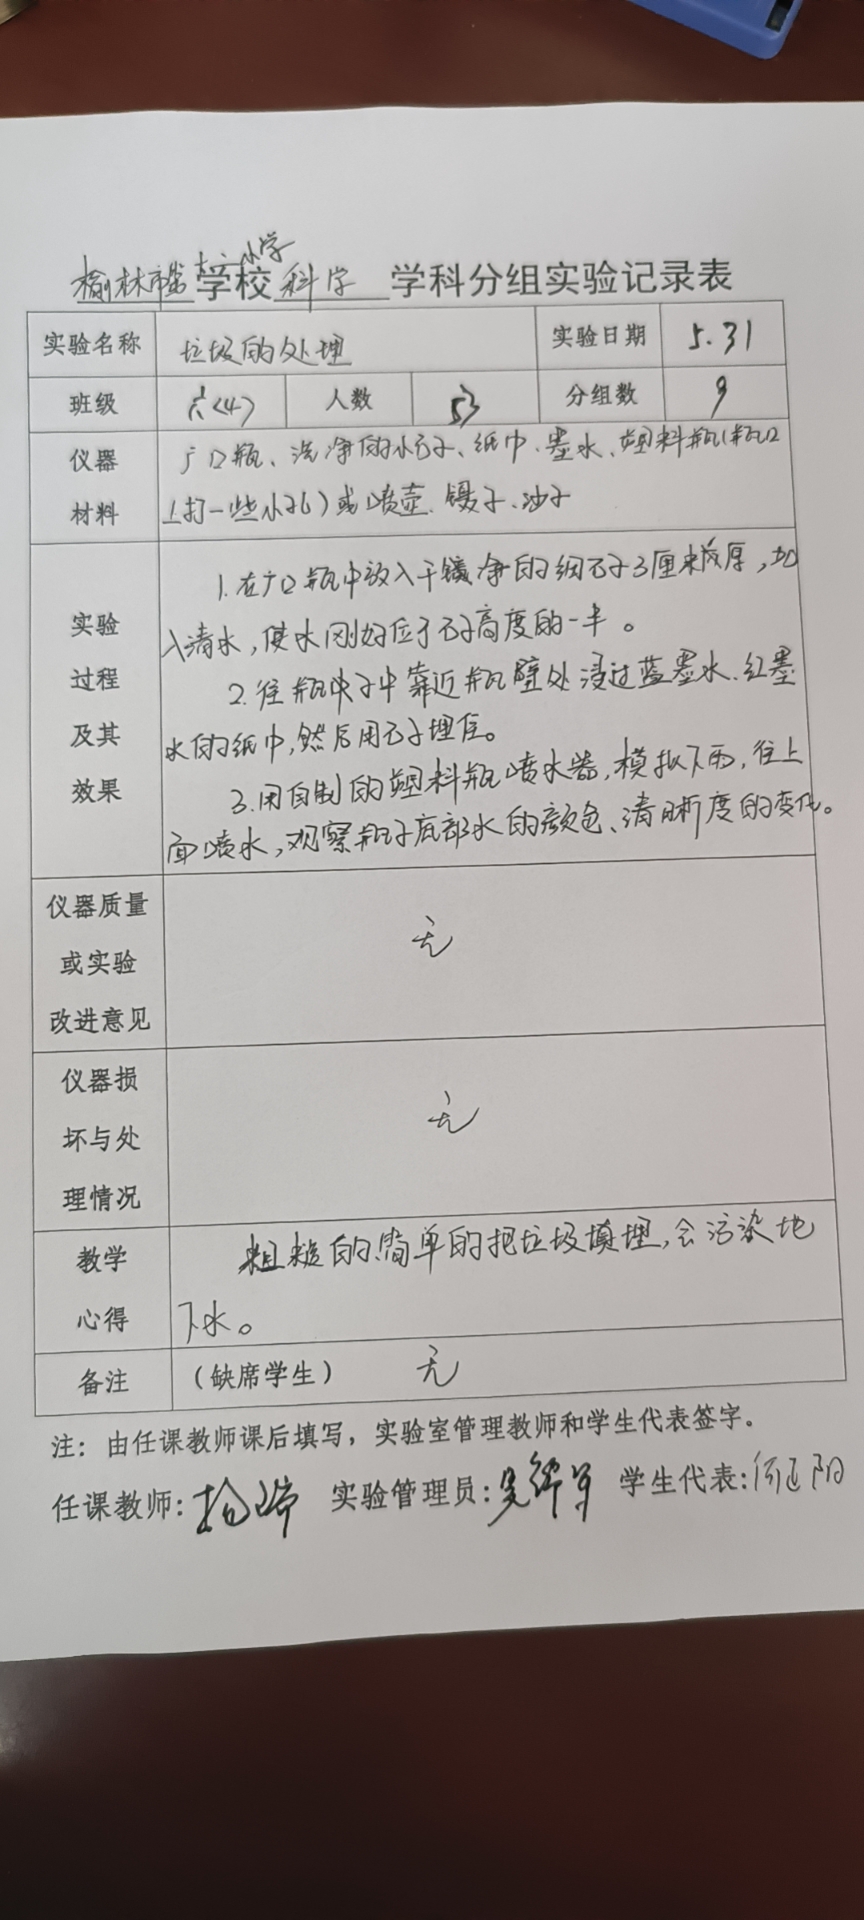 榆林市第十二小学
学校 科学 学科分组实验记录表
实验名称 垃圾的处理 实验日期 5.31
班级 六(4) 人数 53 分组数 9
仪器 广口瓶、洗净的小石子、纸巾、墨水、塑料瓶(瓶口
材料 上打一些小孔)或喷壶、镊子、沙子
1.在广口瓶中放入干净的细石子3厘米厚,加
实验 入清水,使水刚好位于石子高度的一半。
过程 2.往瓶中子中靠近瓶壁处浸过蓝墨水、红墨
及其 水的纸巾,然后用石子埋住。
效果 3.用自制的塑料瓶喷水器,模拟下雨,往上
面喷水,观察瓶子底部水的颜色、清晰度的变化。
仪器质量
或实验 无
改进意见
仪器损
坏与处 无
理情况
教学 粗糙的、简单的把垃圾填埋,会污染地
心得 下水。
备注 (缺席学生) 无
注:由任课教师课后填写,实验室管理教师和学生代表签字。
任课教师: 实验管理员: 学生代表: